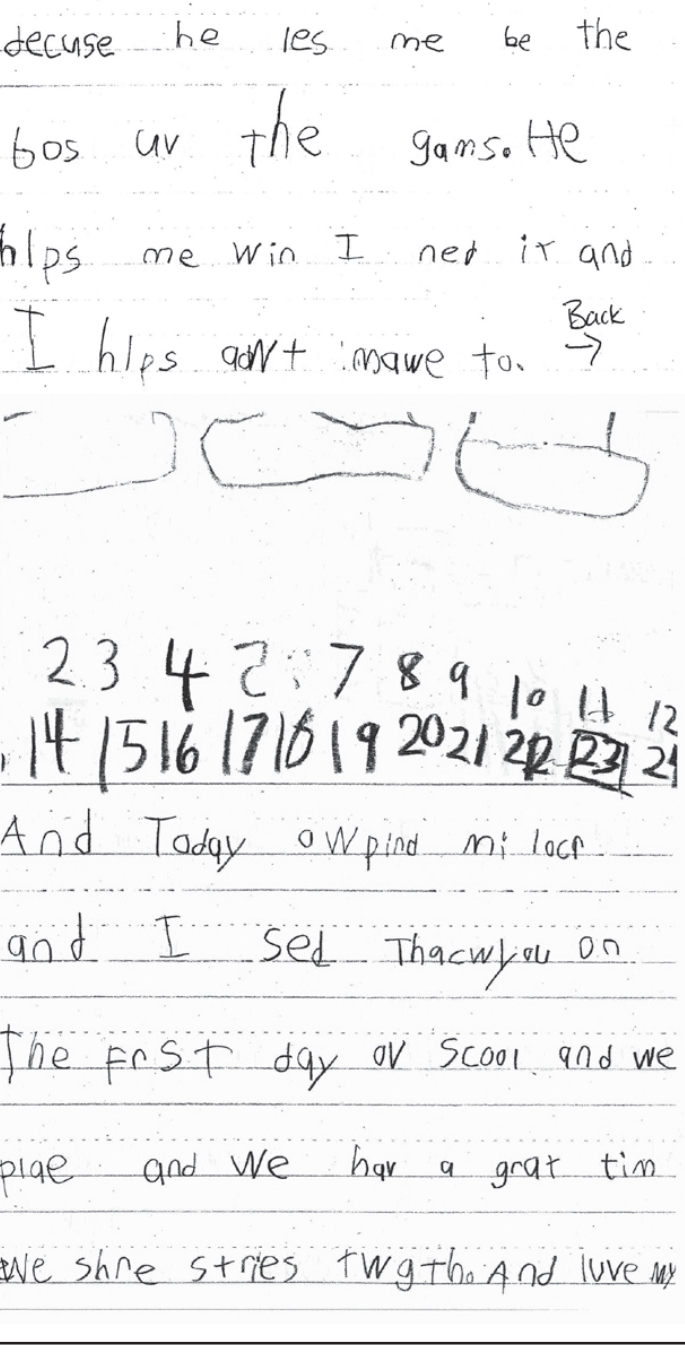 decuse he les me be the
bos uv the gams. He
hlps me win I ned it and
Back
I hlps mawe to.
2 3 4 5 7 8 9 10 11 12
14 15 16 17 18 19 20 21 22 23 24
And Today owpind mi locr
and I sed Thacwyou on
The Frst day ov scool and we
plae and we hav a grat tim
We shre stries twgth. And luve my